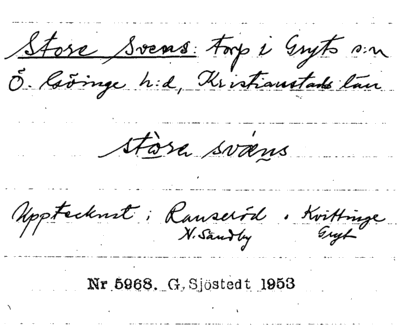 Store Svens: torp i Gryts s:n
Ö. Göinge h:d, Kristianstads län
stòra svæ̀ns
Upptecknat i Ranseröd o Kvittinge
N. Sandby Gryt
Nr 5968. G. Sjöstedt 1953